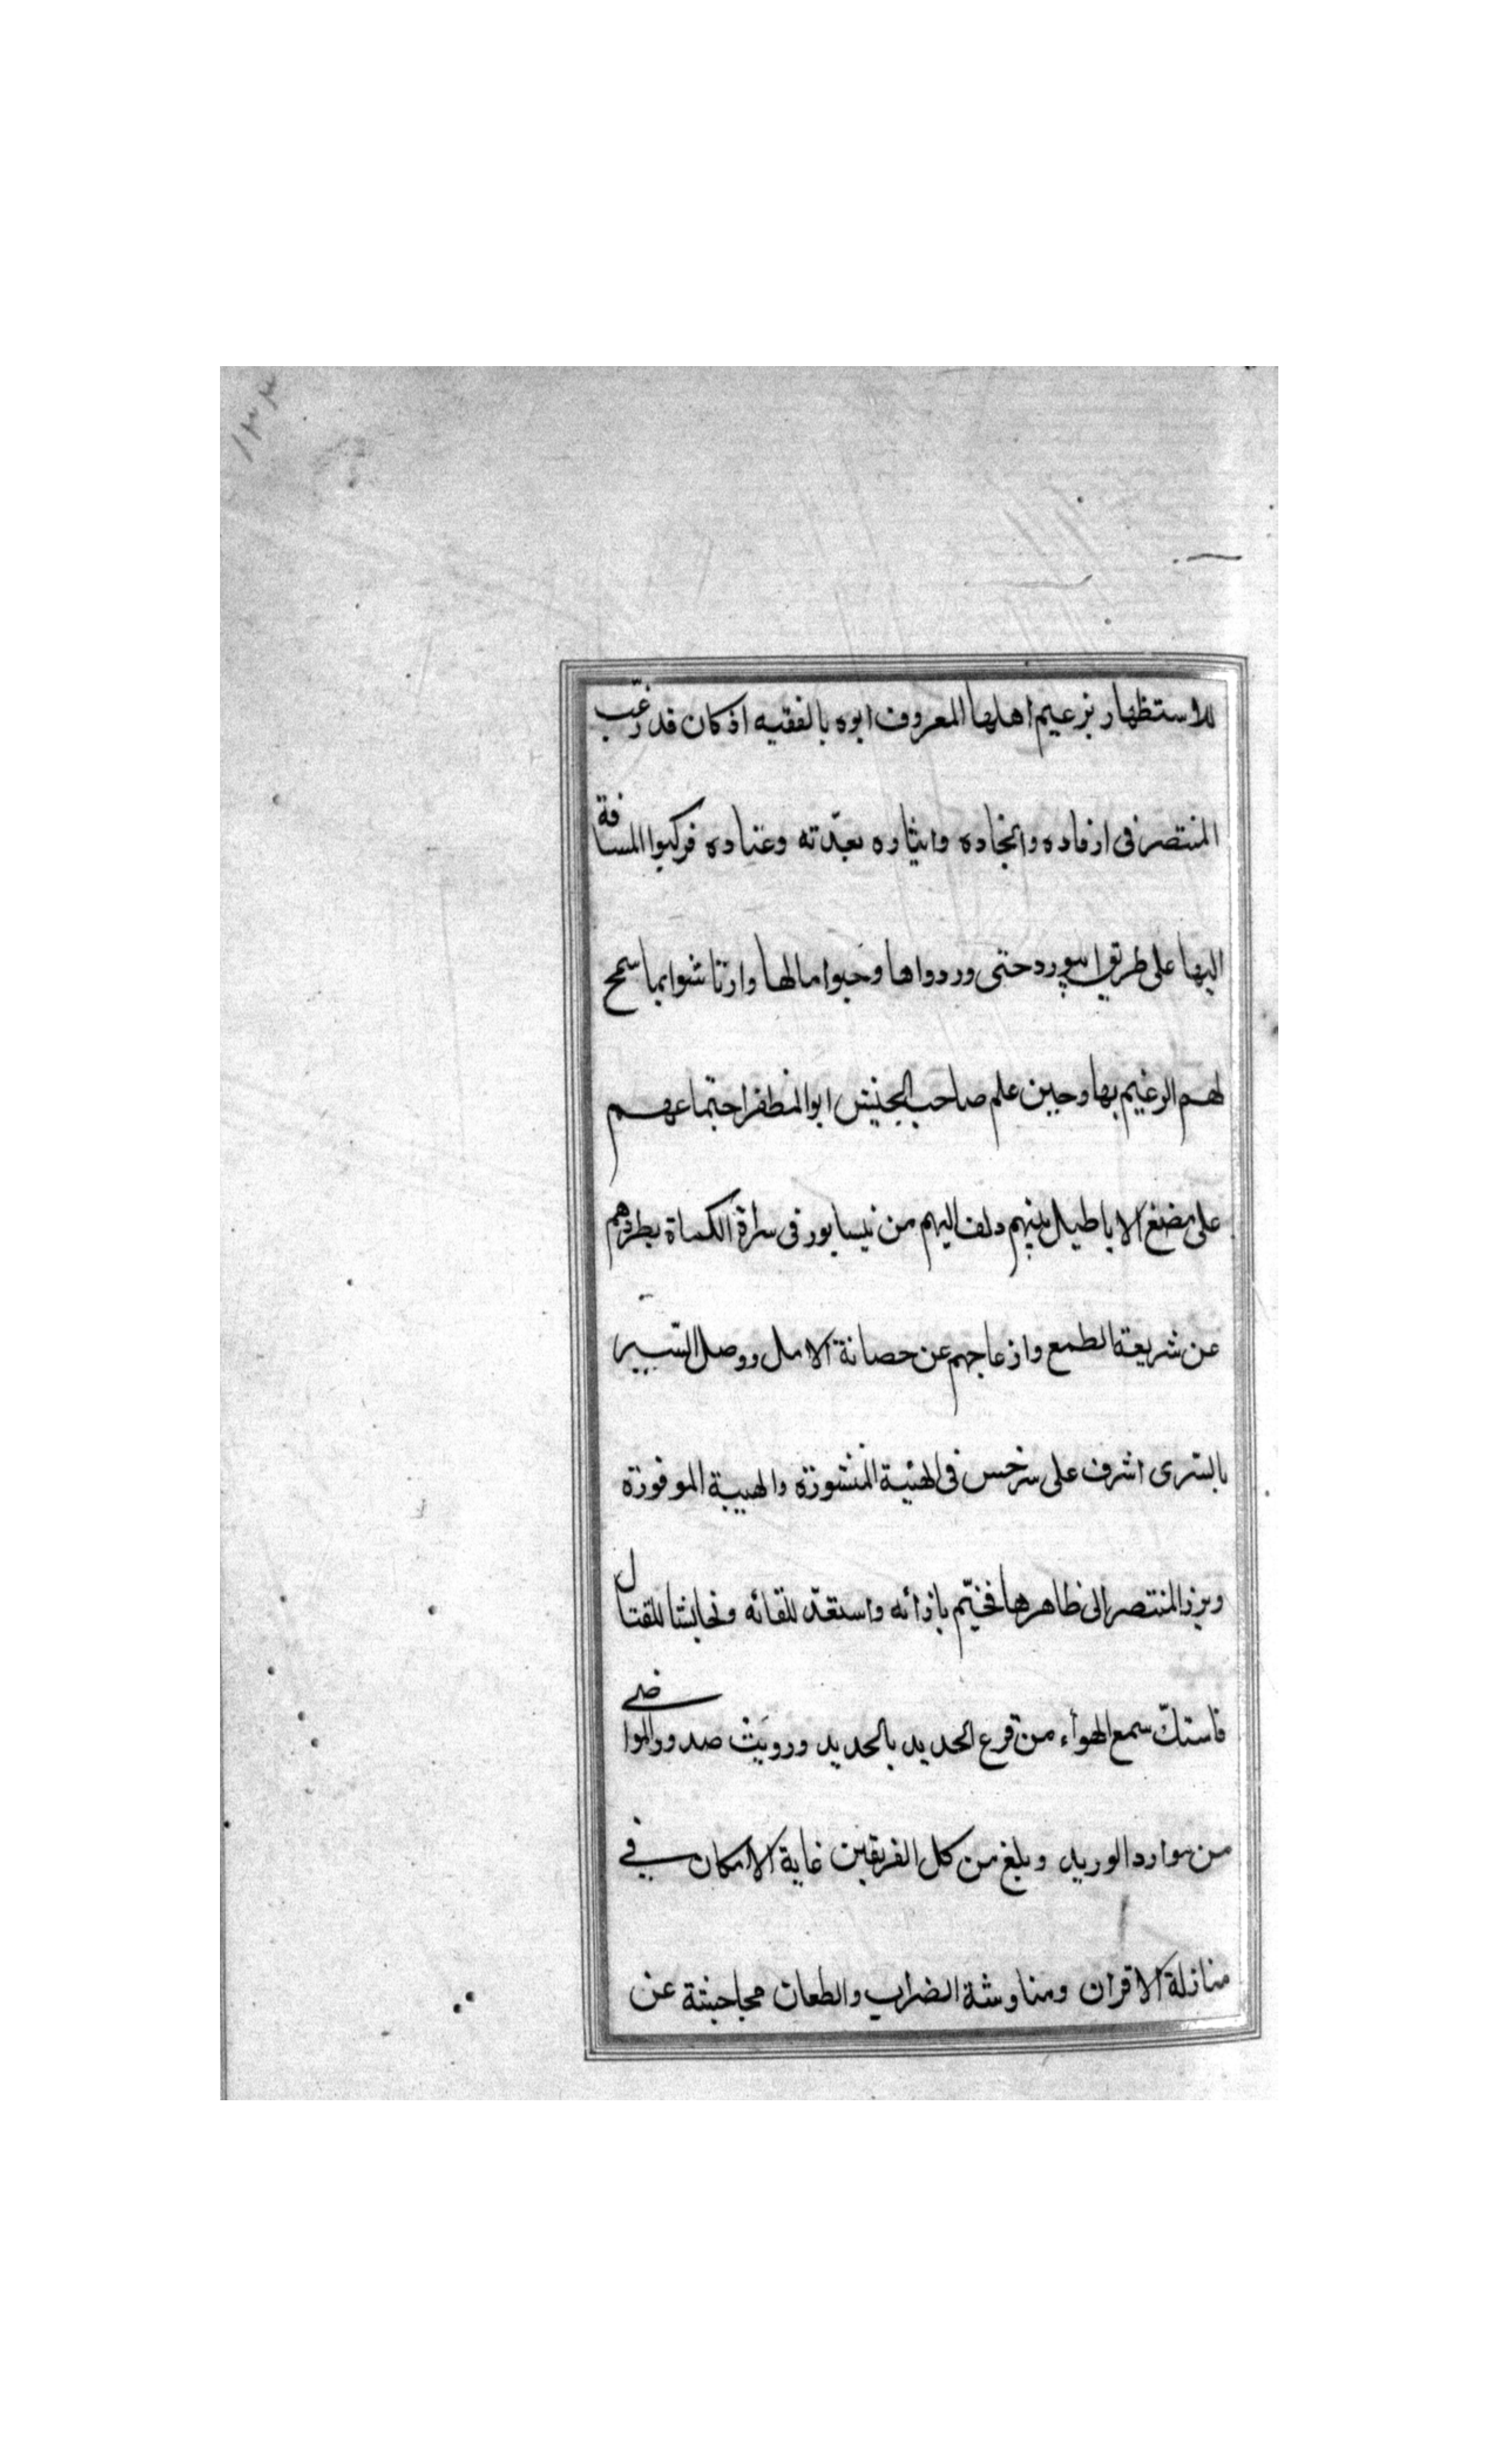 للاستظهار بزعيم اهلها المعروف ابوه بالفقيه اذ كان قد رغّب
المنتصر فى ارفاده وانجاده وايثاره بعدّته وعتاده فركبوا المسافة
اليها على طريق ابيورد حتى وردواها وجبوا مالها وارتاشوا بما سمح
لهم الزعيم بها وحين علم صاحب الجيش ابو المظفر اجتماعهم
على مضغ الاباطيل بينهم دلف اليهم من نيسابور فى سراة الكماة بطردهم
عن شريعة الطمع وازعاجهم عن حصانة الامل ووصل السّير
بالسّرى اشرف على سرخس فى الهيئة المنشورة والهيبة الموفورة
وبرز المنتصر الى ظاهرها فخيّم بازائه واستعدّ للقائه وتحايشا للقتال
فاستكّ سمع الهواء من قرع الحديد بالحديد ورويت صدور المواضى
من موارد الوريد وبلغ من كل الفريقين غاية الامكان فى
منازلة الاقران ومناوشة الضراب والطعان مجاحشة عن